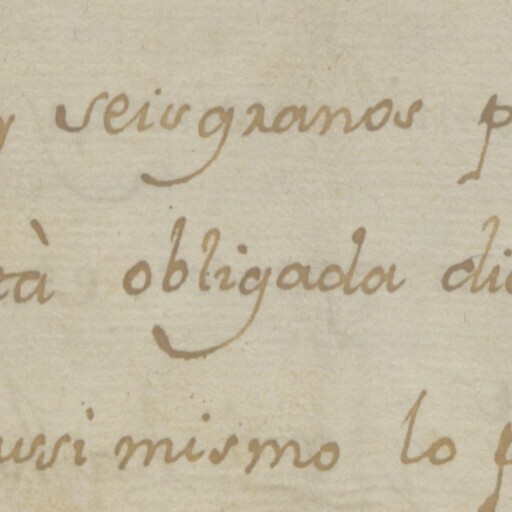 y seis granos p
tà obligada dic
ussi mismo lo p